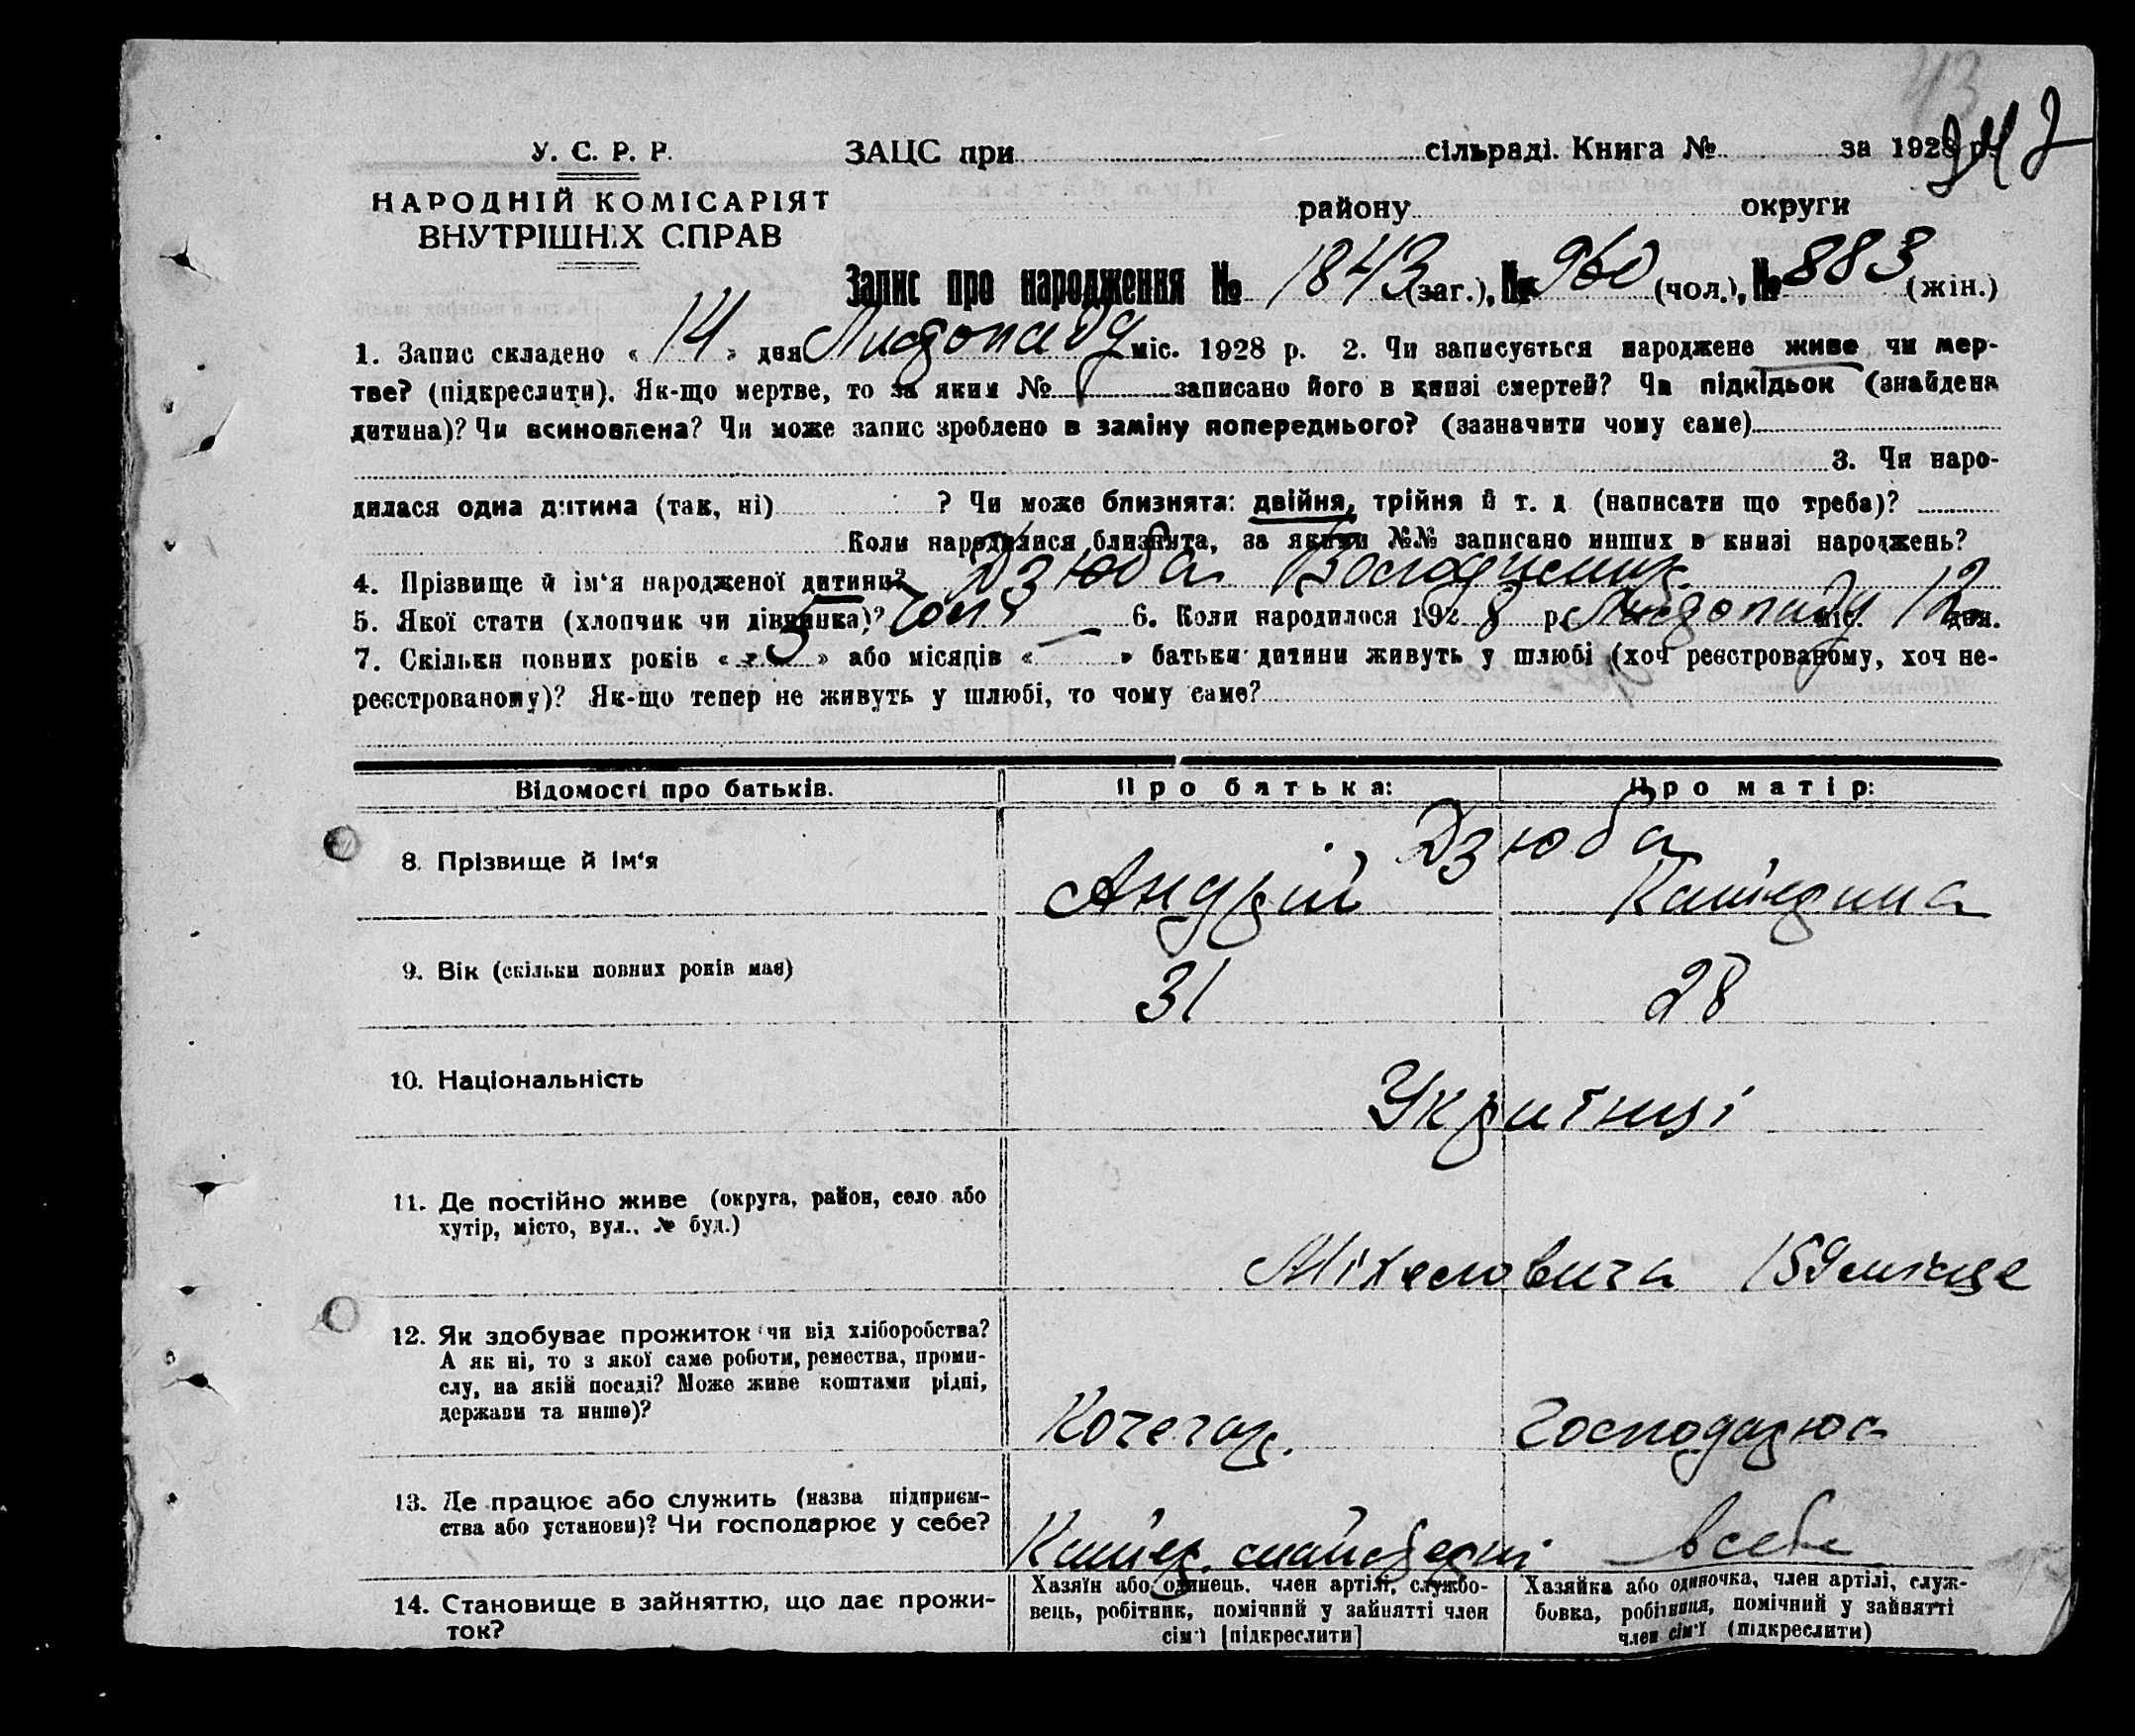 43
У. С. Р. Р. ЗАЦС при сільраді. Книга № за 1928 р.
НАРОДНІЙ КОМІСАРІЯТ району округи
ВНУТРІШНІХ СПРАВ
Запис про народження № 1843 (заг.), № 960 (чол.), № 883 (жін.)
1. Запис складено « 14 » дня Листопаду міс. 1928 р. 2. Чи записується народжене живе чи мер-
тве? (підкреслити). Як-що мертве, то за яким № записано його в книзі смертей? Чи підкідьок (знайдена
дитина)? Чи всиновлена? Чи може запис зроблено в заміну попереднього? (зазначити чому саме)
3. Чи наро-
дилася одна дитина (так, ні) ? Чи може близнята: двійня, трійня й т. д (написати що треба)?
Коли народилися близнята, за якими №№ записано инших в книзі народжень?
4. Прізвище й ім‘я народженої дитини? Дзюба
5. Якої стати (хлопчик чи дівчинка)? 6. Коли народилося 1928 р. Листопаду міс. 12 дня.
7. Скільки повних років « 5 » або місяців « — » батьки дитини живуть у шлюбі (хоч реєстрованому, хоч не-
реєстрованому)? Як-що тепер не живуть у шлюбі, то чому саме?
Відомості про батьків. Про батька: Про матір:
Дзюба
8. Прізвище й ім‘я Андрій Катерина
9. Вік (скільки повних років має) 31 28
10. Національність Українці
11. Де постійно живе (округа, район, село або
хутір, місто, вул., № буд.)
159
12. Як здобуває прожиток чи від хліборобства?
А як ні, то з якої саме роботи, ремества, проми-
слу, на якій посаді? Може живе коштами рідні,
держави та инше)? Кочегар. Господарює
13. Де працює або служить (назва підприєм-
ства або установи)? Чи господарює у себе? в себе
14. Становище в зайняттю, що дає прожи-
ток?
Хазяїн або одинець, член артілі, службо-
вець, робітник, помічний у зайнятті член
сім‘ї [підкреслити]
Хазяйка або одиночка, член артілі, служ-
бовка, робітниця, помічний у зайнятті
член сім‘ї (підкреслити)